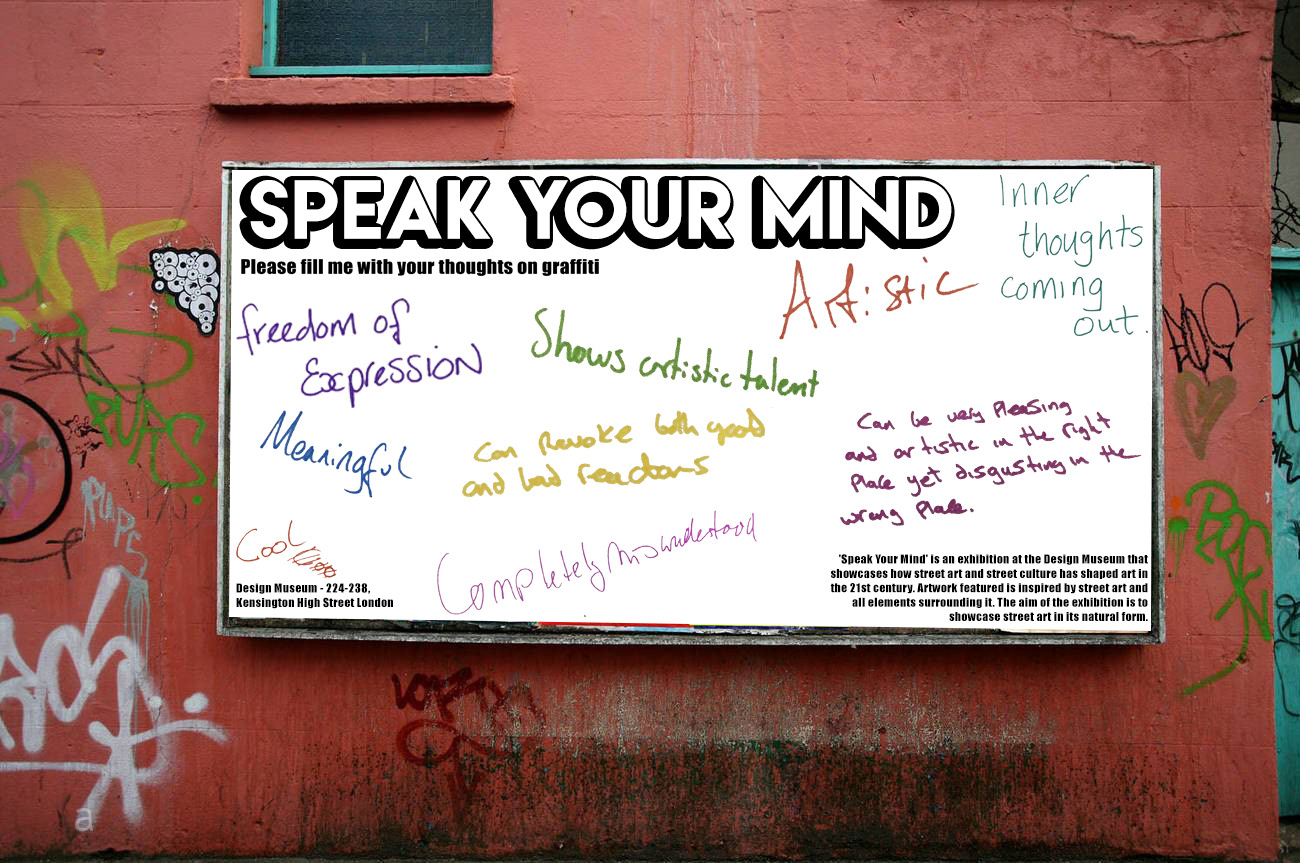 SPEAK YOUR MIND
Please fill me with your thoughts on graffiti
Inner
thoughts
coming
out.
Artistic
freedom of
Expression
Shows artistic talent
Meaningful
Can Revoke both good
and bad reactions
Can be very Pleasing
and artistic in the right
Place yet disgusting in the
wrong Place.
Cool
Completely misunderstood
Design Museum - 224-238,
Kensington High Street London
'Speak Your Mind' is an exhibition at the Design Museum that
showcases how street art and street culture has shaped art in
the 21st century. Artwork featured is inspired by street art and
all elements surrounding it. The aim of the exhibition is to
showcase street art in its natural form.
a
a